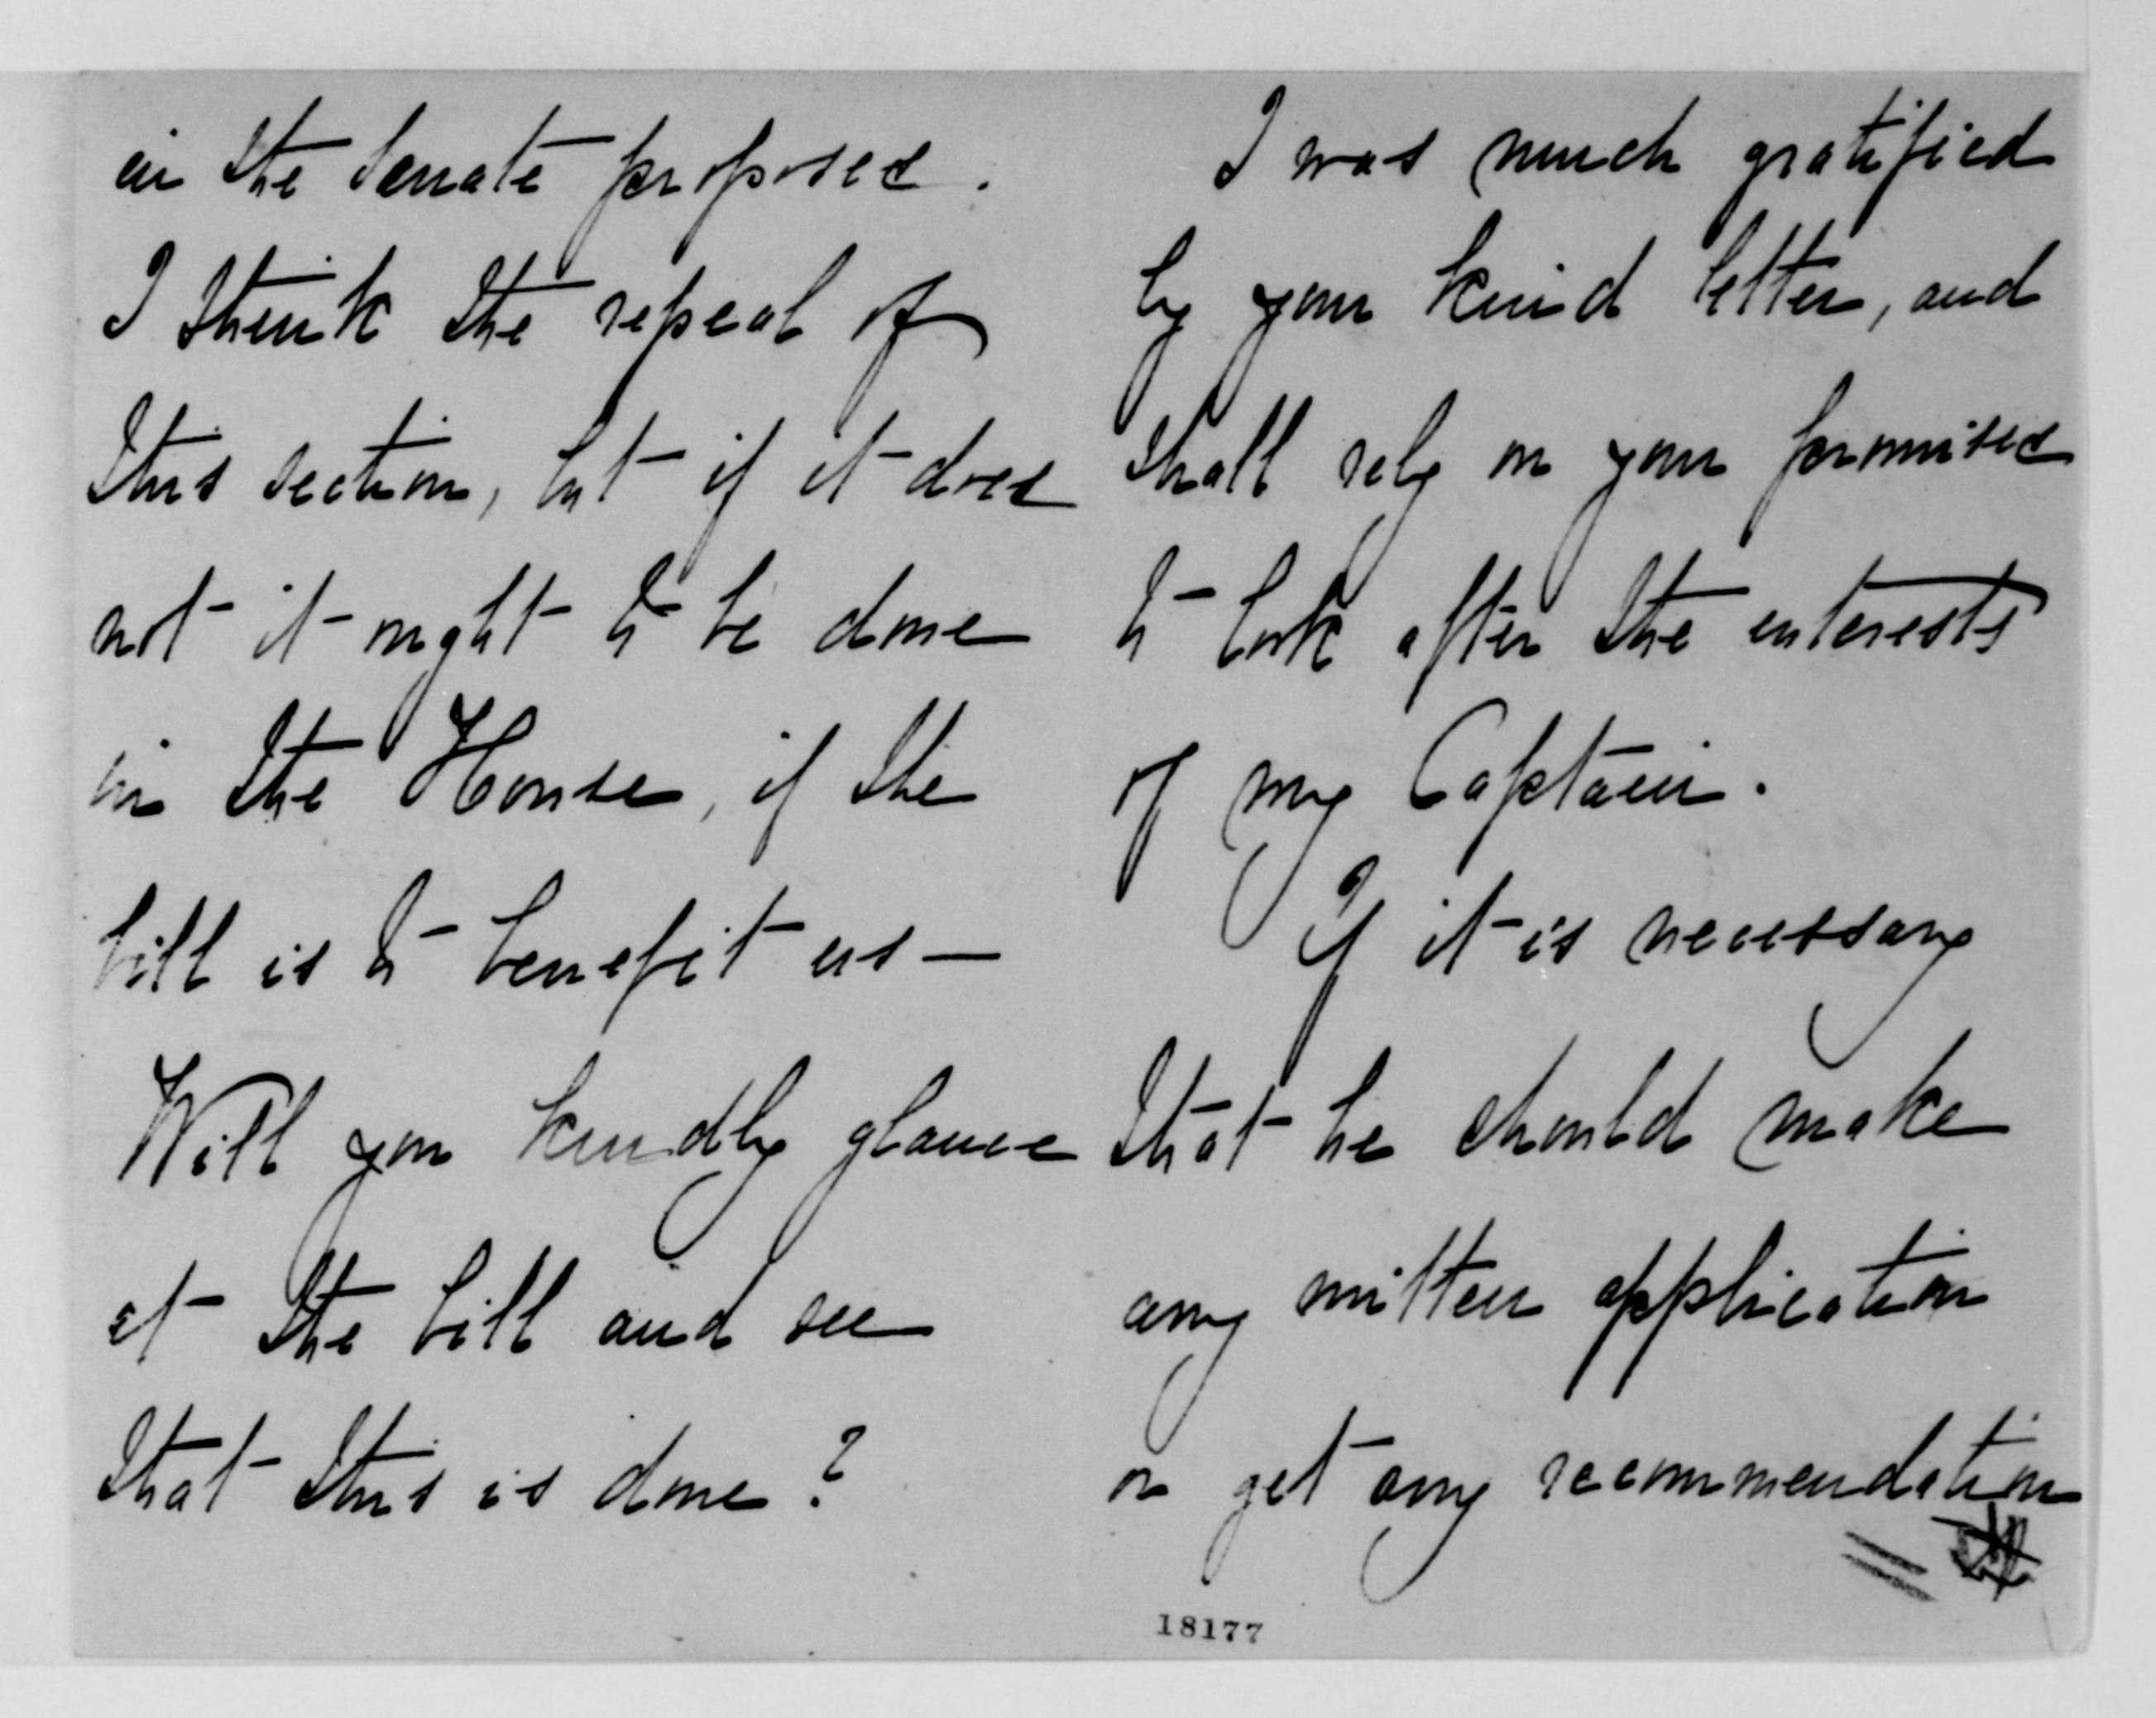 in the Senate proposed.
I think the repeal of
this section, but if it does
not it ought to be done
in the House, if the
bill is to benefit us —
Will you kindly glance
at the bill and see
that this is done?
I was much gratified
by your kind letter, and
shall rely on your promised
to look after the interests
of my Captain.
If it is necessary
that he should make
any written application
or get any recommendation
18177